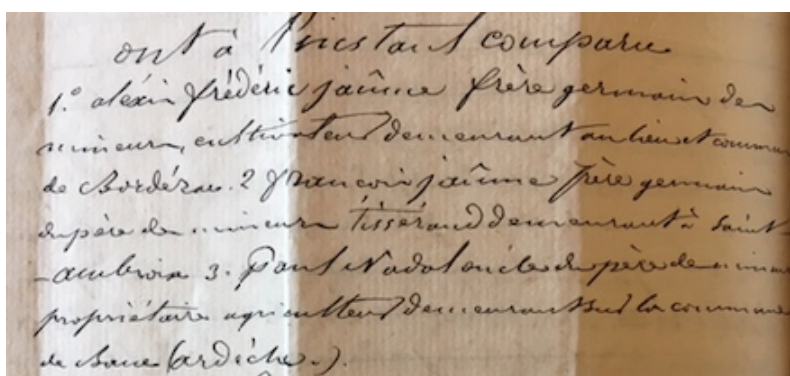 ont à l'instant comparu
1.° aléxin frédéric jaûme frère germain des
mineurs, cultivateur demeurant au lieu et commune
de Bordézac. 2 françois jaûme frère germain
du père des mineurs tissérand demeurant à Saint-
-ambroix 3. Paul Nadal oncle du père des mineurs
propriétaire agriculteur demeurant sur la commune
de Bane (ardèche.).